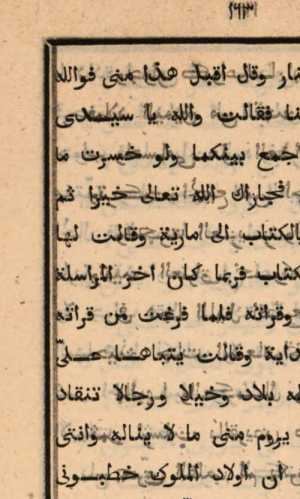 ١٩٣
نهار وقال اقبل هذا منى فوالله
نا فقالت والله يا سيدى
اجمع بينكما ولو خسرت ما
فجازاك الله تعالى خيرا ثم
بالكتاب الى مارية وقالت لها
كتاب فربما كان اخر المراسلة
وقراته فلما فرغت من قراته
داية وقالت يتباها على
له بلاد وخيلا ورجالا تنقاد
يروم منى ما لا يناله واننى
ان اولاد الملوك خطبونى